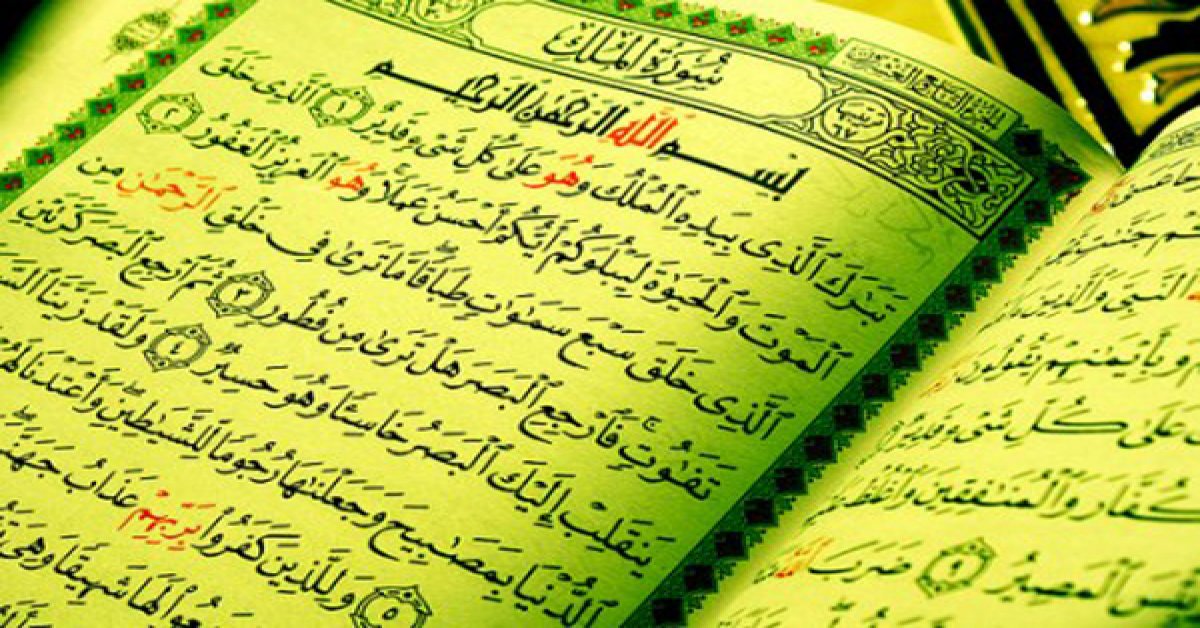 الجزء التاسع والعشرون
سُورَةُ المُلْكِ
ترتيبها ٦٧
بِسْمِ اللَّهِ الرَّحْمَٰنِ الرَّحِيمِ
تَبَٰرَكَ ٱلَّذِى بِيَدِهِ ٱلْمُلْكُ وَهُوَ عَلَىٰ كُلِّ شَىْءٍ قَدِيرٌ ١ ٱلَّذِى خَلَقَ
ٱلْمَوْتَ وَٱلْحَيَوٰةَ لِيَبْلُوَكُمْ أَيُّكُمْ أَحْسَنُ عَمَلًا وَهُوَ ٱلْعَزِيزُ ٱلْغَفُورُ ٢
ٱلَّذِى خَلَقَ سَبْعَ سَمَٰوَٰتٍ طِبَاقًا مَّا تَرَىٰ فِى خَلْقِ ٱلرَّحْمَٰنِ مِن
تَفَٰوُتٍ فَٱرْجِعِ ٱلْبَصَرَ هَلْ تَرَىٰ مِن فُطُورٍ ٣ ثُمَّ ٱرْجِعِ ٱلْبَصَرَ كَرَّتَيْنِ
يَنقَلِبْ إِلَيْكَ ٱلْبَصَرُ خَاسِئًا وَهُوَ حَسِيرٌ ٤ وَلَقَدْ زَيَّنَّا
ٱلدُّنْيَا بِمَصَٰبِيحَ وَجَعَلْنَٰهَا رُجُومًا لِّلشَّيَٰطِينِ وَأَعْتَدْنَا لَهُمْ
٥ وَلِلَّذِينَ كَفَرُوا۟ بِرَبِّهِمْ عَذَابُ
لَهَا شَهِيقًا وَهِىَ
ٱلنَّبِىَّ وَٱلَّذِينَ
وَبِأَيْمَٰنِهِمْ يَقُولُونَ
عَلَىٰ كُلِّ شَىْءٍ قَدِيرٌ
وَٱلْمُنَٰفِقِينَ وَٱغْلُظْ
ٱلْمَصِيرُ ٩ ضَرَبَ ٱللَّهُ